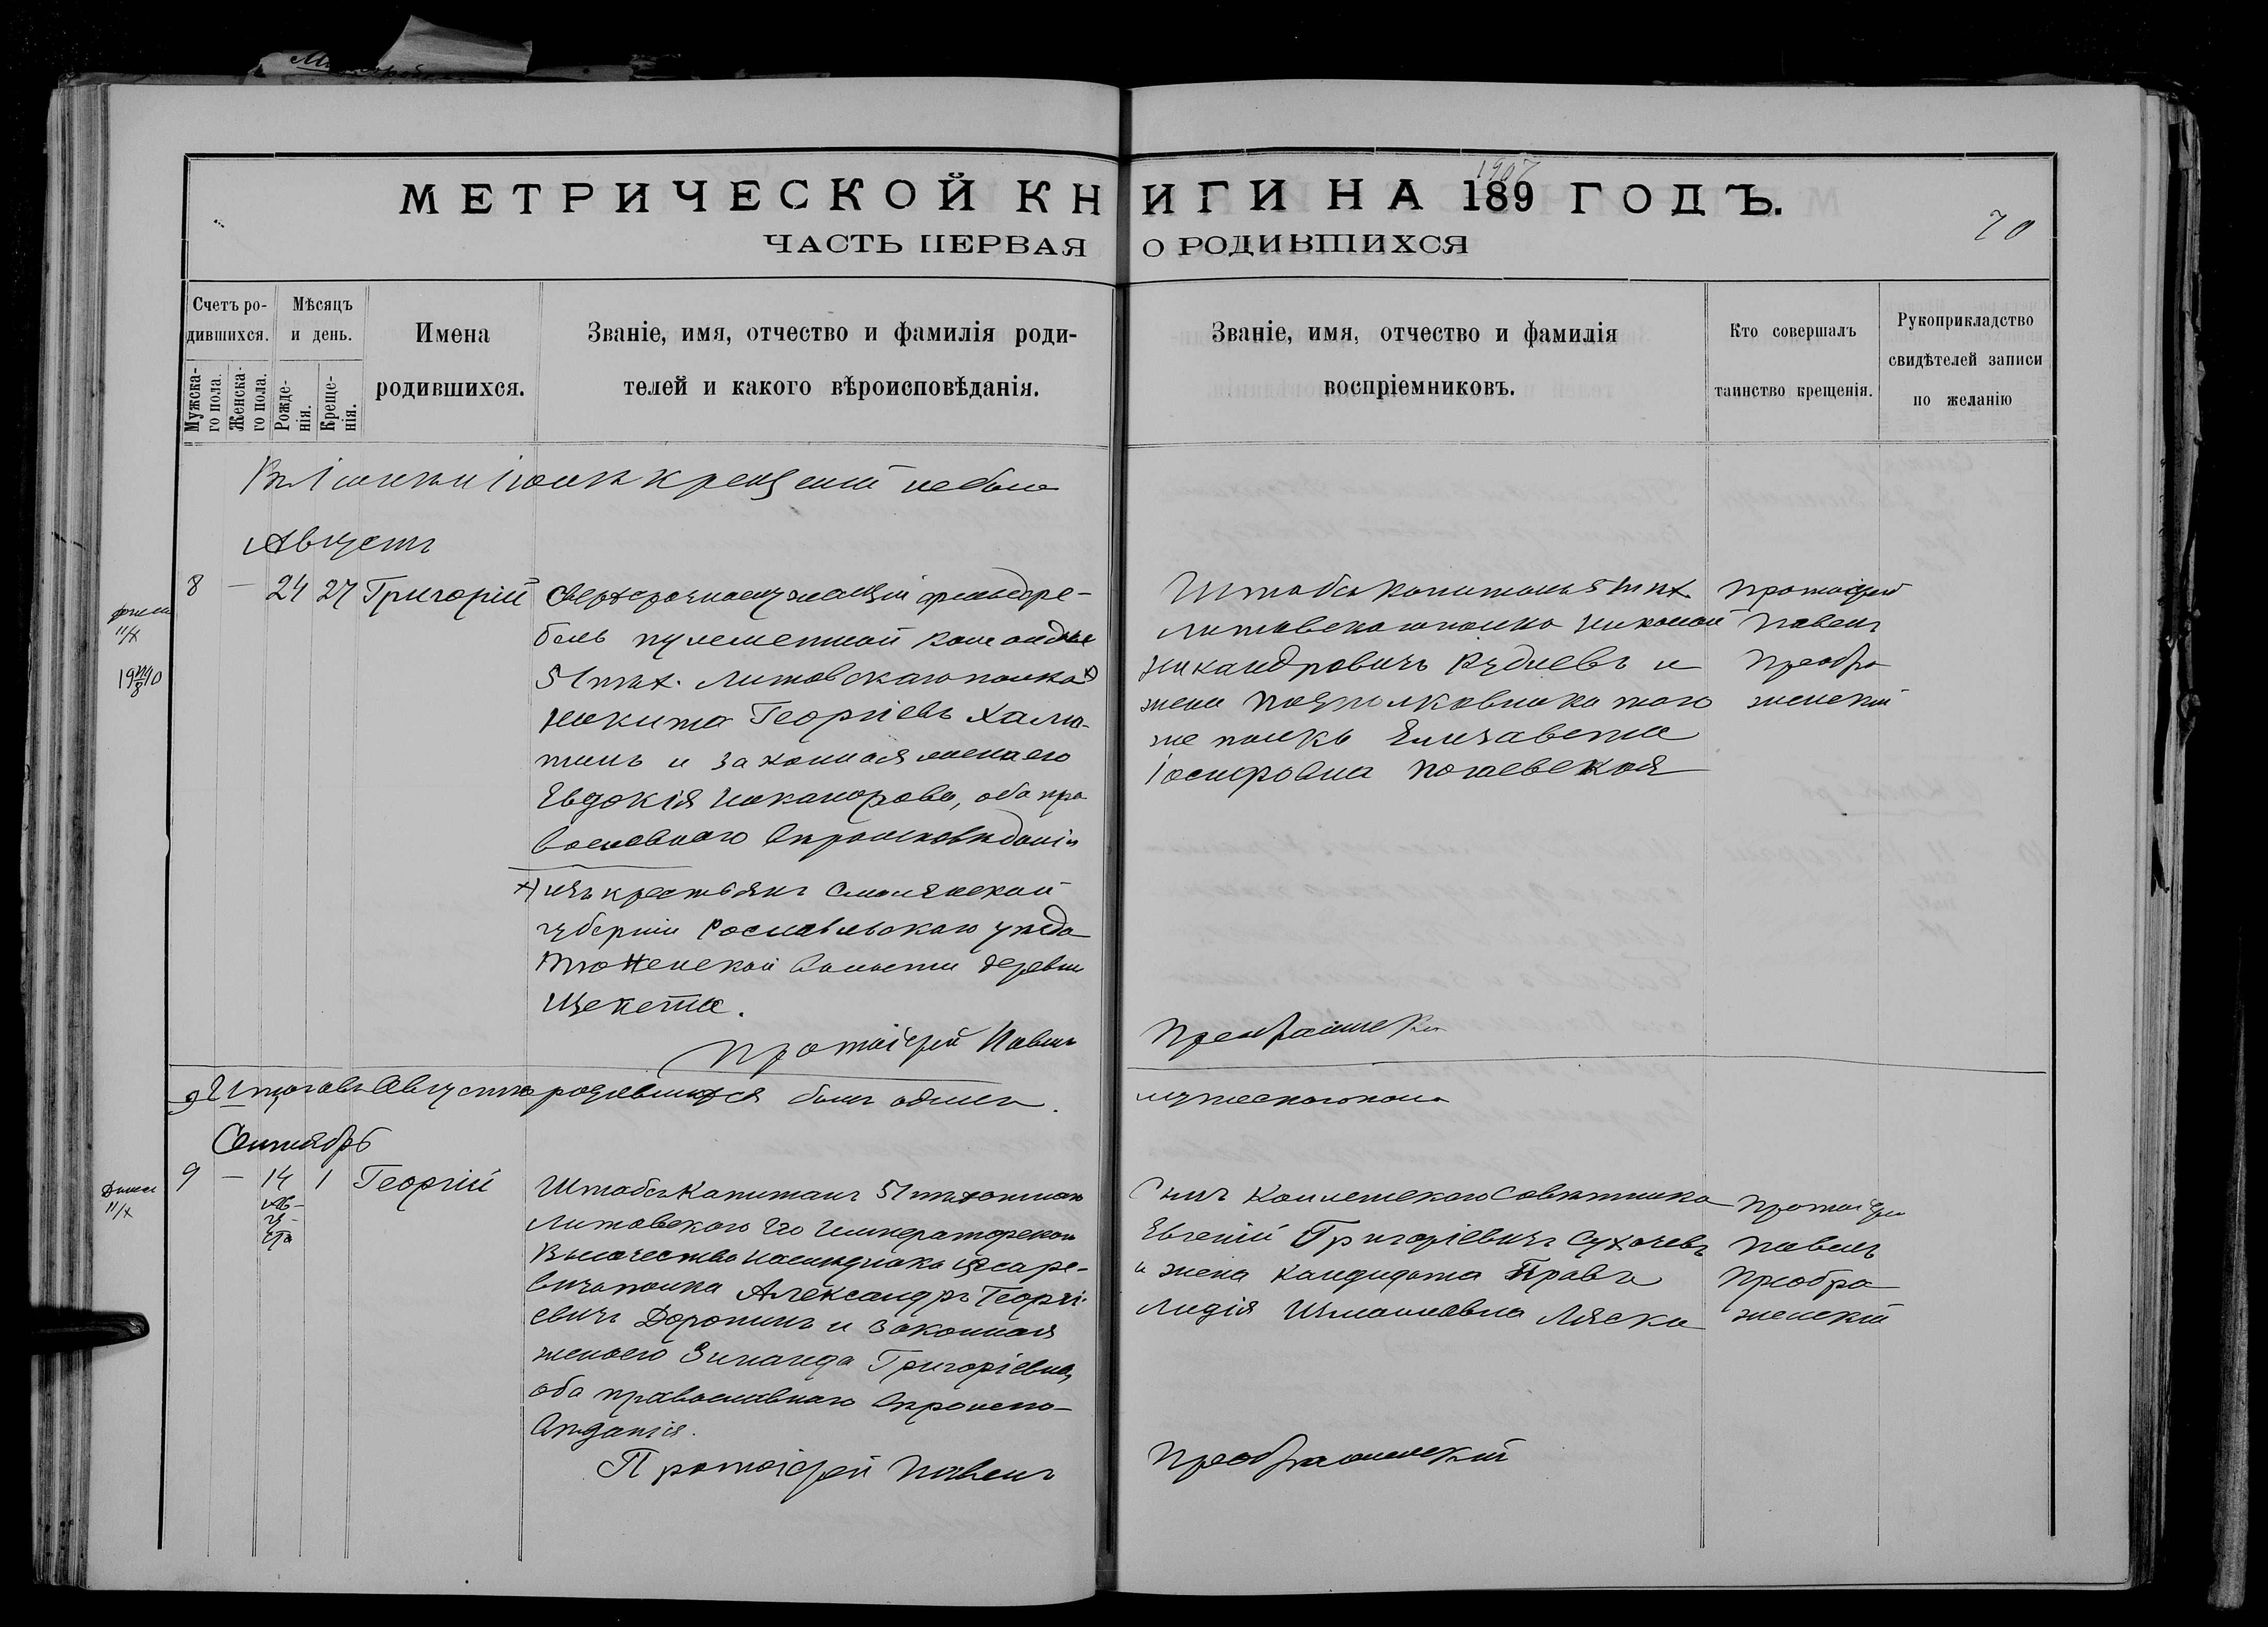 МЕТРИЧЕСКОЙ КНИГИ НА 189 ГОДЪ.
1907
ЧАСТЬ ПЕРВАЯ О РОДИВШИХСЯ
70
Счетъ ро-
дившихся.
Мужска-
го пола.
Женска-
го пола.
Мѣсяцъ
и день.
Рожде-
нія.
Креще-
нія.
Имена
родившихся.
Званіе, имя, отчество и фамилія роди-
телей и какого вѣроисповѣданія.
Званіе, имя, отчество и фамилія
воспріемниковъ.
Кто совершалъ
таинство крещенія.
Рукоприкладство
свидѣтелей записи
по желанію
крещеній не было
Августъ
8 — 24 27 Григорій
Сверхсрочнослужащій фельдфе-
бель пулеметной команды
51 пѣх. Литовскаго полка х)
Никита Георгіевъ
и законная жена его
Евдокія Никанорова, оба пра
вославнаго вѣроисповѣданія
х) изъ крестьянъ Смоленской
губерніи Рославльскаго уѣзда
волости деревни
Протоіерей Павелъ
Преображенскій
Штабсъ Капитанъ 51 пѣх.
Литовскаго полка Николай
Никандровичъ Рудневъ и
жена Подполковника того
же полка Елизавета
Іосифовна
Протоіерей
Павелъ
Преобра
женскій
11/X
Итого въ Августѣ родившихся былъ одинъ.
мужескаго пола
Сентябрь
9 — 14 1 Георгій
Ав-
гу-
ста
11/X
Штабсъ Капитанъ 51 пѣхотнаго
Литовскаго Его Императорскаго
Высочества Наслѣдника Цесаре-
вича полка Александръ Георгі-
евичъ Доронинъ и законная
жена его Зинаида Григоріевна,
оба православнаго вѣроиспо-
вѣданія.
Протоіерей Павелъ
Преображенскій
Сынъ Коллежскаго Совѣтника
Евгеній Григоріевичъ Сухачевъ
и жена Кандидата Правъ
Лидія Ляска
Протоіерей
Павелъ
Преобра
женскій